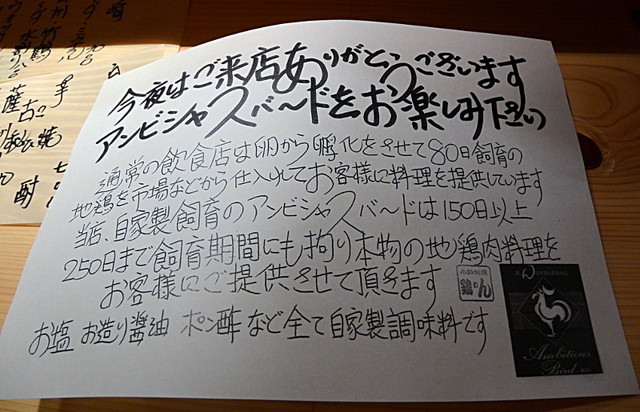 今夜はご来店ありがとうございます
アンビシャスバードをお楽しみ下さい
通常の飲食店は卵から孵化をさせて80日飼育の
地鶏を市場などから仕入れしてお客様に料理を提供しています
当店、自家製飼育のアンビシャスバードは150日以上
250日まで飼育期間にも拘り本物の地鶏肉料理を
お客様にご提供させて頂きます
お塩 お造り醤油 ポン酢 など全て自家製調味料です
Ambitious
Bird